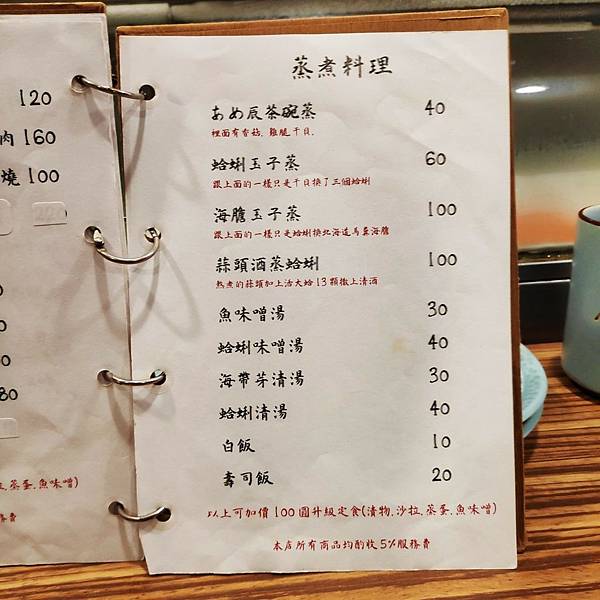 120
肉 160
燒 100
0
0
0
80
沙拉.蒸蛋.魚味噌)
務費
蒸煮料理
あめ辰茶碗蒸 40
裡面有香菇.雞腿.干貝.
蛤蜊玉子蒸 60
跟上面的一樣只是干貝換了三個蛤蜊
海膽玉子蒸 100
跟上面的一樣只是蛤蜊換北海道馬糞海膽
蒜頭酒蒸蛤蜊 100
熟煮的蒜頭加上活大蛤13顆撒上清酒
魚味噌湯 30
蛤蜊味噌湯 40
海帶芽清湯 30
蛤蜊清湯 40
白飯 10
壽司飯 20
以上可加價100圓升級定食(漬物.沙拉.蒸蛋.魚味噌)
本店所有商品均酌收5%服務費